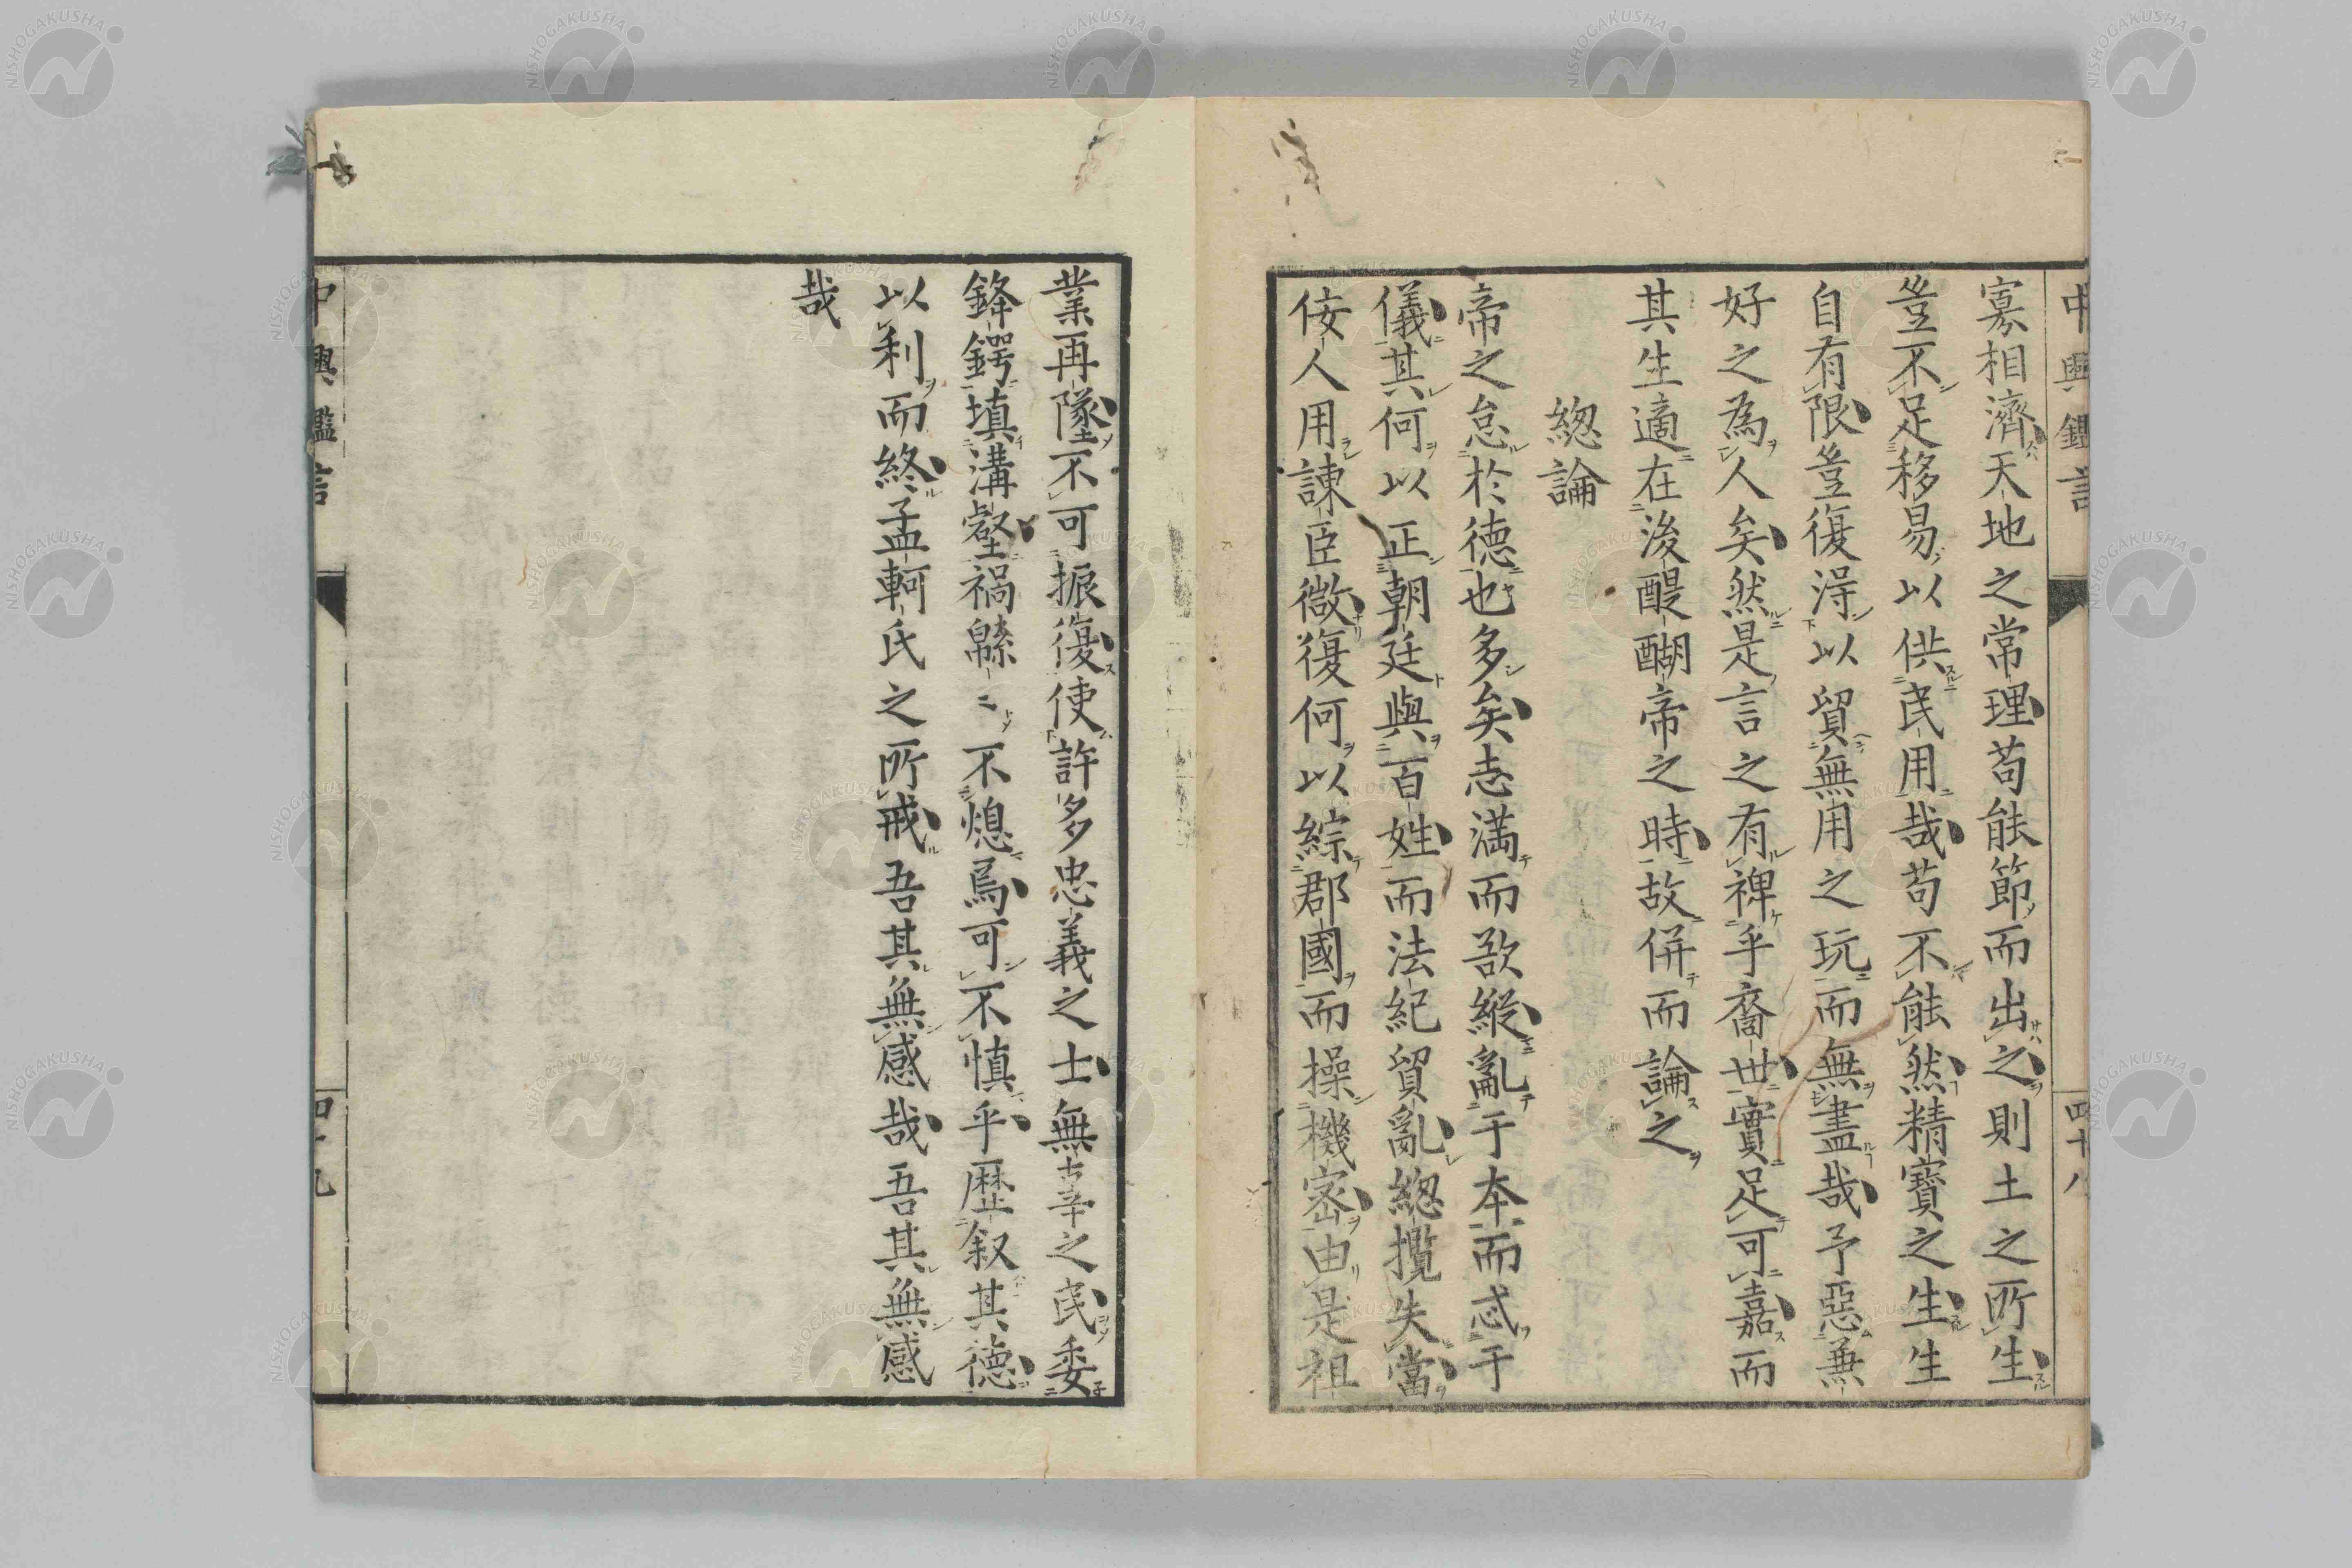 中興鑑言
四十八
寡相濟天地之常理苟能節而出之則土之所生
豈不足移易以供民用哉苟不能然精寶之生生
自有限豈復得以貿無用之玩而無盡哉予惡無
好之為人矣然是言之有裨乎裔世實足可嘉而
其生適在後醍醐帝之時故併而論之
總論
帝之怠於德也多矣志滿而欲縱亂于本而忒于
儀其何以正朝廷與百姓而法紀貿亂總攬失當
佞人用諫臣微復何以綜郡國而操機密由是祖
業再墜不可振復使許多忠義之士無辜之民委
鋒鍔填溝壑禍緜〻不熄焉可不慎乎歴叙其德
以利而終孟軻氏之所戒吾其無感哉吾其無感
哉
中興鑑言
四十九
NISHOGAKUSHA